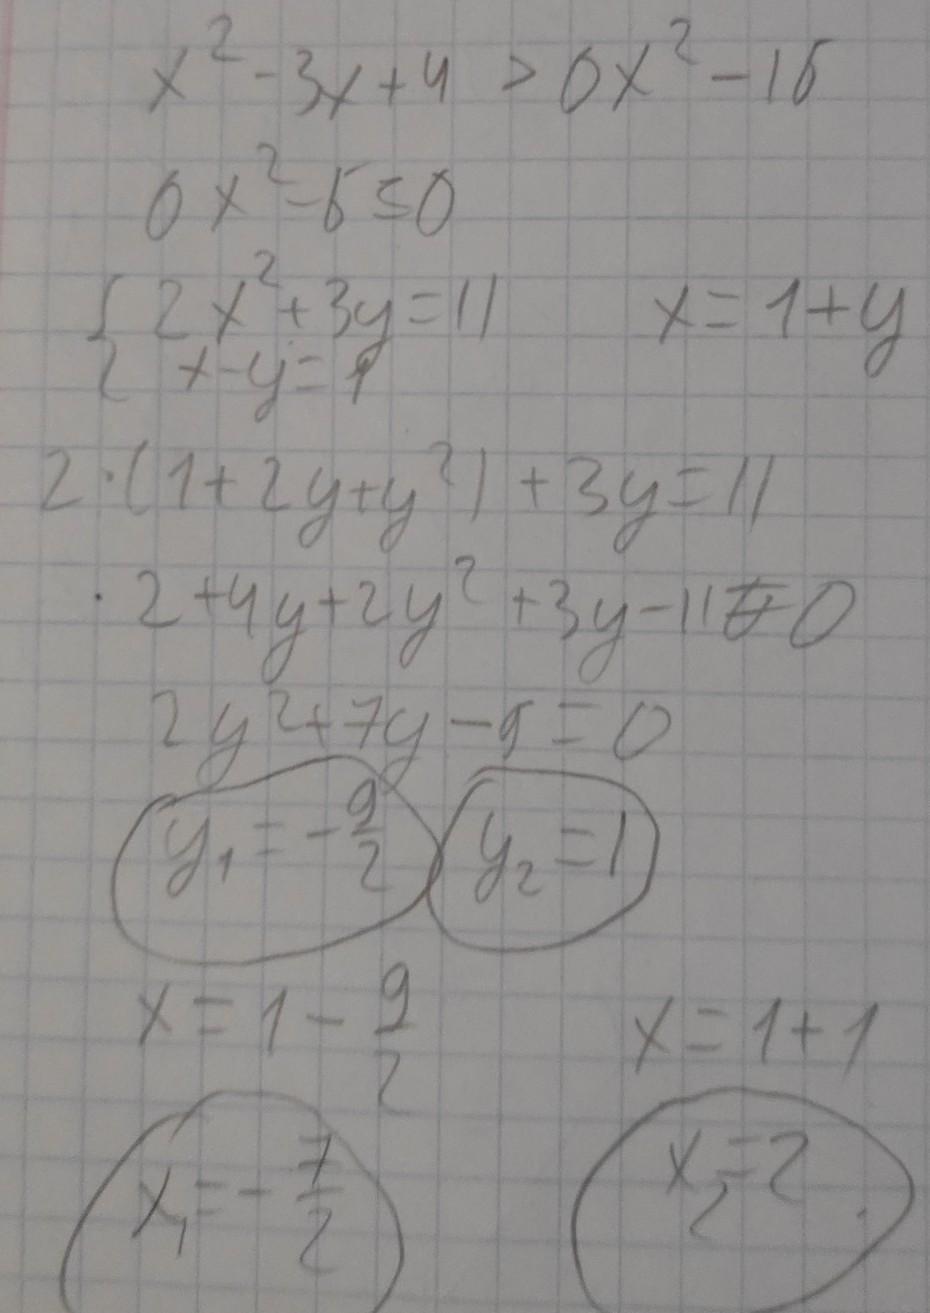 x² - 3x + 4 > 6x² - 15
6x² - 5 ≤ 0
{ 2x² + 3y = 11
x - y = 1
x = 1 + y
2 · (1 + 2y + y²) + 3y = 11
· 2 + 4y + 2y² + 3y - 11 = 0
2y² + 7y - 9 = 0
y₁ = - 9/2 y₂ = 1
x = 1 - 9/2 x = 1 + 1
x₁ = - 7/2 x₂ = 2